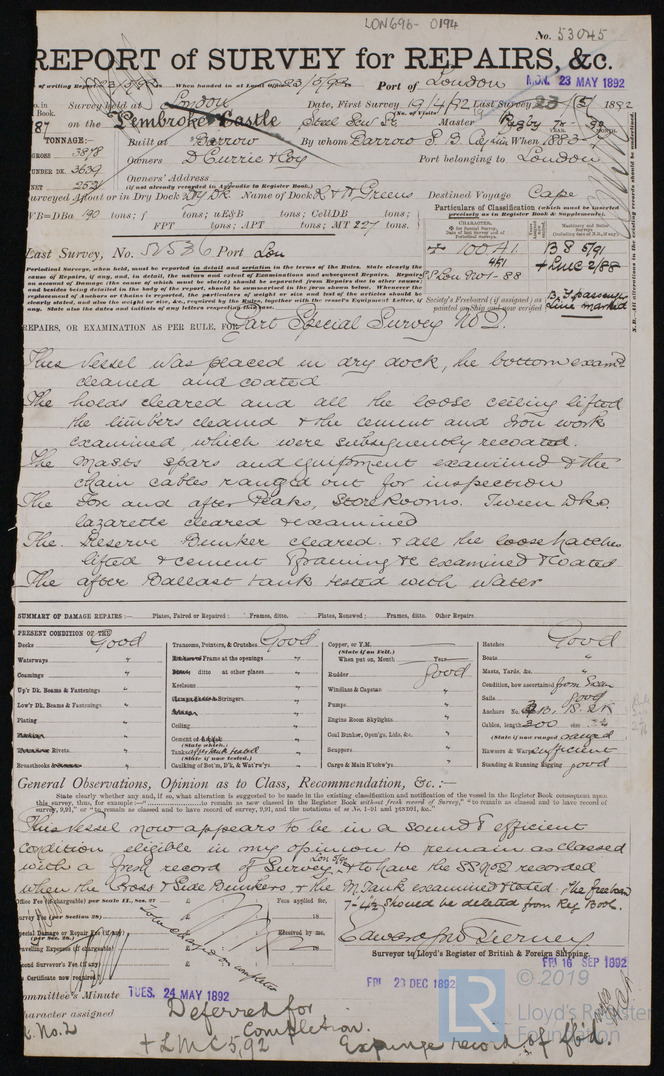 LON696-0194
No. 53045
REPORT of SURVEY for REPAIRS, &c.
of writing Report 23/5/92 When handed in at Local Office 23/5/92 Port of London MON. 23 MAY 1892
No. in Survey held at London Date, First Survey 19/4/92 Last Survey 23/5/1892
Book. (No. of Visits)
87 on the Pembroke Castle Steel Scw Sr Master Rigby
TONNAGE:— Built at Barrow By whom Barrow S. B. Coy When 1883
GROSS 3878
Owners D Currie & Coy Port belonging to London
UNDER DK. 3639
Owners' Address
NET 2521 (if not already recorded in Appendix to Register Book.)
Surveyed Afloat or in Dry Dock Dry Dk Name of Dock R & H Greens Destined Voyage Cape
WB=DBa 190 tons; f tons; uE&B tons; CellDB tons;
FPT tons; APT tons; MT 227 tons.
Particulars of Classification (which must be inserted precisely as in Register Book & Supplements).
Last Survey, No. 52536 Port Lon
+ 100 A1. B S 5/91
+ LMC 2/88
S.S. Lon No1-88
Periodical Surveys, when held, must be reported in detail and seriatim in the terms of the Rules. State clearly the
cause of Repairs, if any, and, in detail, the nature and extent of Examinations and subsequent Repairs. Repairs
on account of Damage (the cause of which must be stated) should be separated from Repairs due to other causes;
and besides being detailed in the body of the report, should be summarised in the form shown below. Whenever the
replacement of Anchors or Chains is reported, the particulars of weight or size and test of the articles should be
clearly stated, and also the weight or size, &c., required by the Rules, together with the vessel's Equipment Letter, if
any. State also the dates and initials of any letters respecting this case.
Society's Freeboard (if assigned) as painted on Ship and now verified
line marked
N.B.—All alterations in the existing records should be underlined.
REPAIRS, OR EXAMINATION AS PER RULE, FOR Part Special Survey No 2.
This vessel was placed in dry dock, the bottom examd
cleaned and coated
The holds cleared and all the loose ceiling lifted
the limbers cleaned & the cement and Iron work
examined which were subsequently recoated.
The masts spars and equipment examined & the
chain cables ranged out for inspection
The Fore and after Peaks, Store Rooms. Tween Dks.
lazarette cleared & examined
The Reserve Bunker cleared & all the loose hatches
lifted & cement Framing &c examined & coated
The after Ballast tank tested with water
SUMMARY OF DAMAGE REPAIRS:— Plates, Faired or Repaired: Frames, ditto. Plates, Renewed: Frames, ditto. Other Repairs
PRESENT CONDITION OF THE
Decks Good
Waterways "
Coamings "
Up'r Dk. Beams & Fastenings "
Low'r Dk. Beams & Fastenings "
Plating "
Rivets. "
Breasthooks "
Transoms, Pointers, & Crutches Good
Frame at the openings "
ditto at other places "
Keelsons "
Stringers "
Ceiling "
Cement
(State which.)
Tanks after tank tested
(State if now tested.)
Caulking of Bot'm, D'k, & Wat'rw'ys "
Copper, or Y.M.
(State if on Felt.)
When put on, Month Year
Rudder good
Windlass & Capstan "
Pumps "
Engine Room Skylights "
Coal Bunker, Open'gs, Lids, &c. "
Scuppers "
Cargo & Main H'tchw'ys "
Hatches Good
Boats "
Masts, Yards, &c. "
Condition, how ascertained
Sails good
Anchors No.
Cables, length 300 size
(State if now ranged) ranged
Hawsers & Warps sufficient
Standing & Running Rigging good
General Observations, Opinion as to Class, Recommendation, &c.:—
State clearly whether any, and if so, what alteration is suggested to be made in the existing classification and notification of the vessel in the Register Book consequent upon
this survey, thus, for example:—"to remain as now classed in the Register Book without fresh record of Survey," "to remain as classed and to have record of
survey, 9,91," or "to remain as classed and to have record of survey, 9,91, and the notations of ss No. 1-91 and ptsND91, &c."
This vessel now appears to be in a sound & efficient
condition eligible in my opinion to remain as classed
with a fresh record of Survey Lon 5/92 & to have the SS No2 recorded
when the Cross & Side Bunkers & the M Tank examined & tested. The freeboard
7-4½ should be deleted from Reg Book.
Office Fee (if chargeable) per Scale II., Sec. 27 £ Fees applied for,
Survey Fee (per Section 28) £ 18
Special Damage or Repair Fee (if any) £ Received by me,
(per Sec. 28.)
Travelling Expenses (if chargeable) £ 18
Second Surveyor's Fee (if any) £
Is Certificate now required?
To be charged on completion
Edward J M Tierney.
Surveyor to Lloyd's Register of British & Foreign Shipping.
FRI 16 SEP 1892
FRI 23 DEC 1892
Committee's Minute TUES. 24 MAY 1892
Character assigned Deferred for
Completion.
+ LMC 5,92 Expunge record of fb'd.
© 2019
LR
Lloyd's Register
Foundation